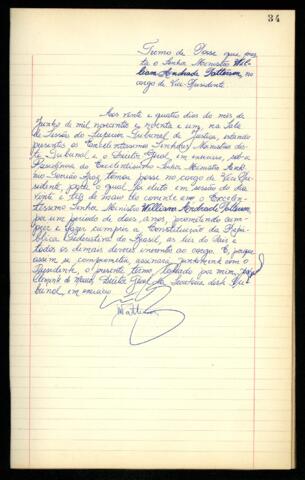 34
Termo de Posse que pres-
ta o Senhor Ministro Wil-
liam Andrade Patterson, no
cargo de Vice-Presidente.
Aos vinte e quatro dias do mês de
junho de mil novecentos e noventa e um, na Sala
de Sessões do Superior Tribunal de Justiça, estando
presentes os Excelentíssimos Senhores Ministros des-
te Tribunal e o Diretor-Geral, em exercício, sob a
Presidência do Excelentíssimo Senhor Ministro
tomou posse no cargo de Vice-Pre-
sidente, para o qual foi eleito em sessão do dia
vinte e de maio do corrente ano o Excelen-
tíssimo Senhor Ministro William Andrade Patterson,
por um período de dois anos, prometendo cum-
prir e fazer cumprir a Constituição da Repú-
blica Federativa do Brasil, as leis do País e
todos os demais deveres inerentes ao cargo. E, para que
assim se comprometa, assinará, juntamente com o
Presidente, o presente termo lavrado por mim,
Diretor-Geral da Secretaria deste Tri-
bunal, em exercício.